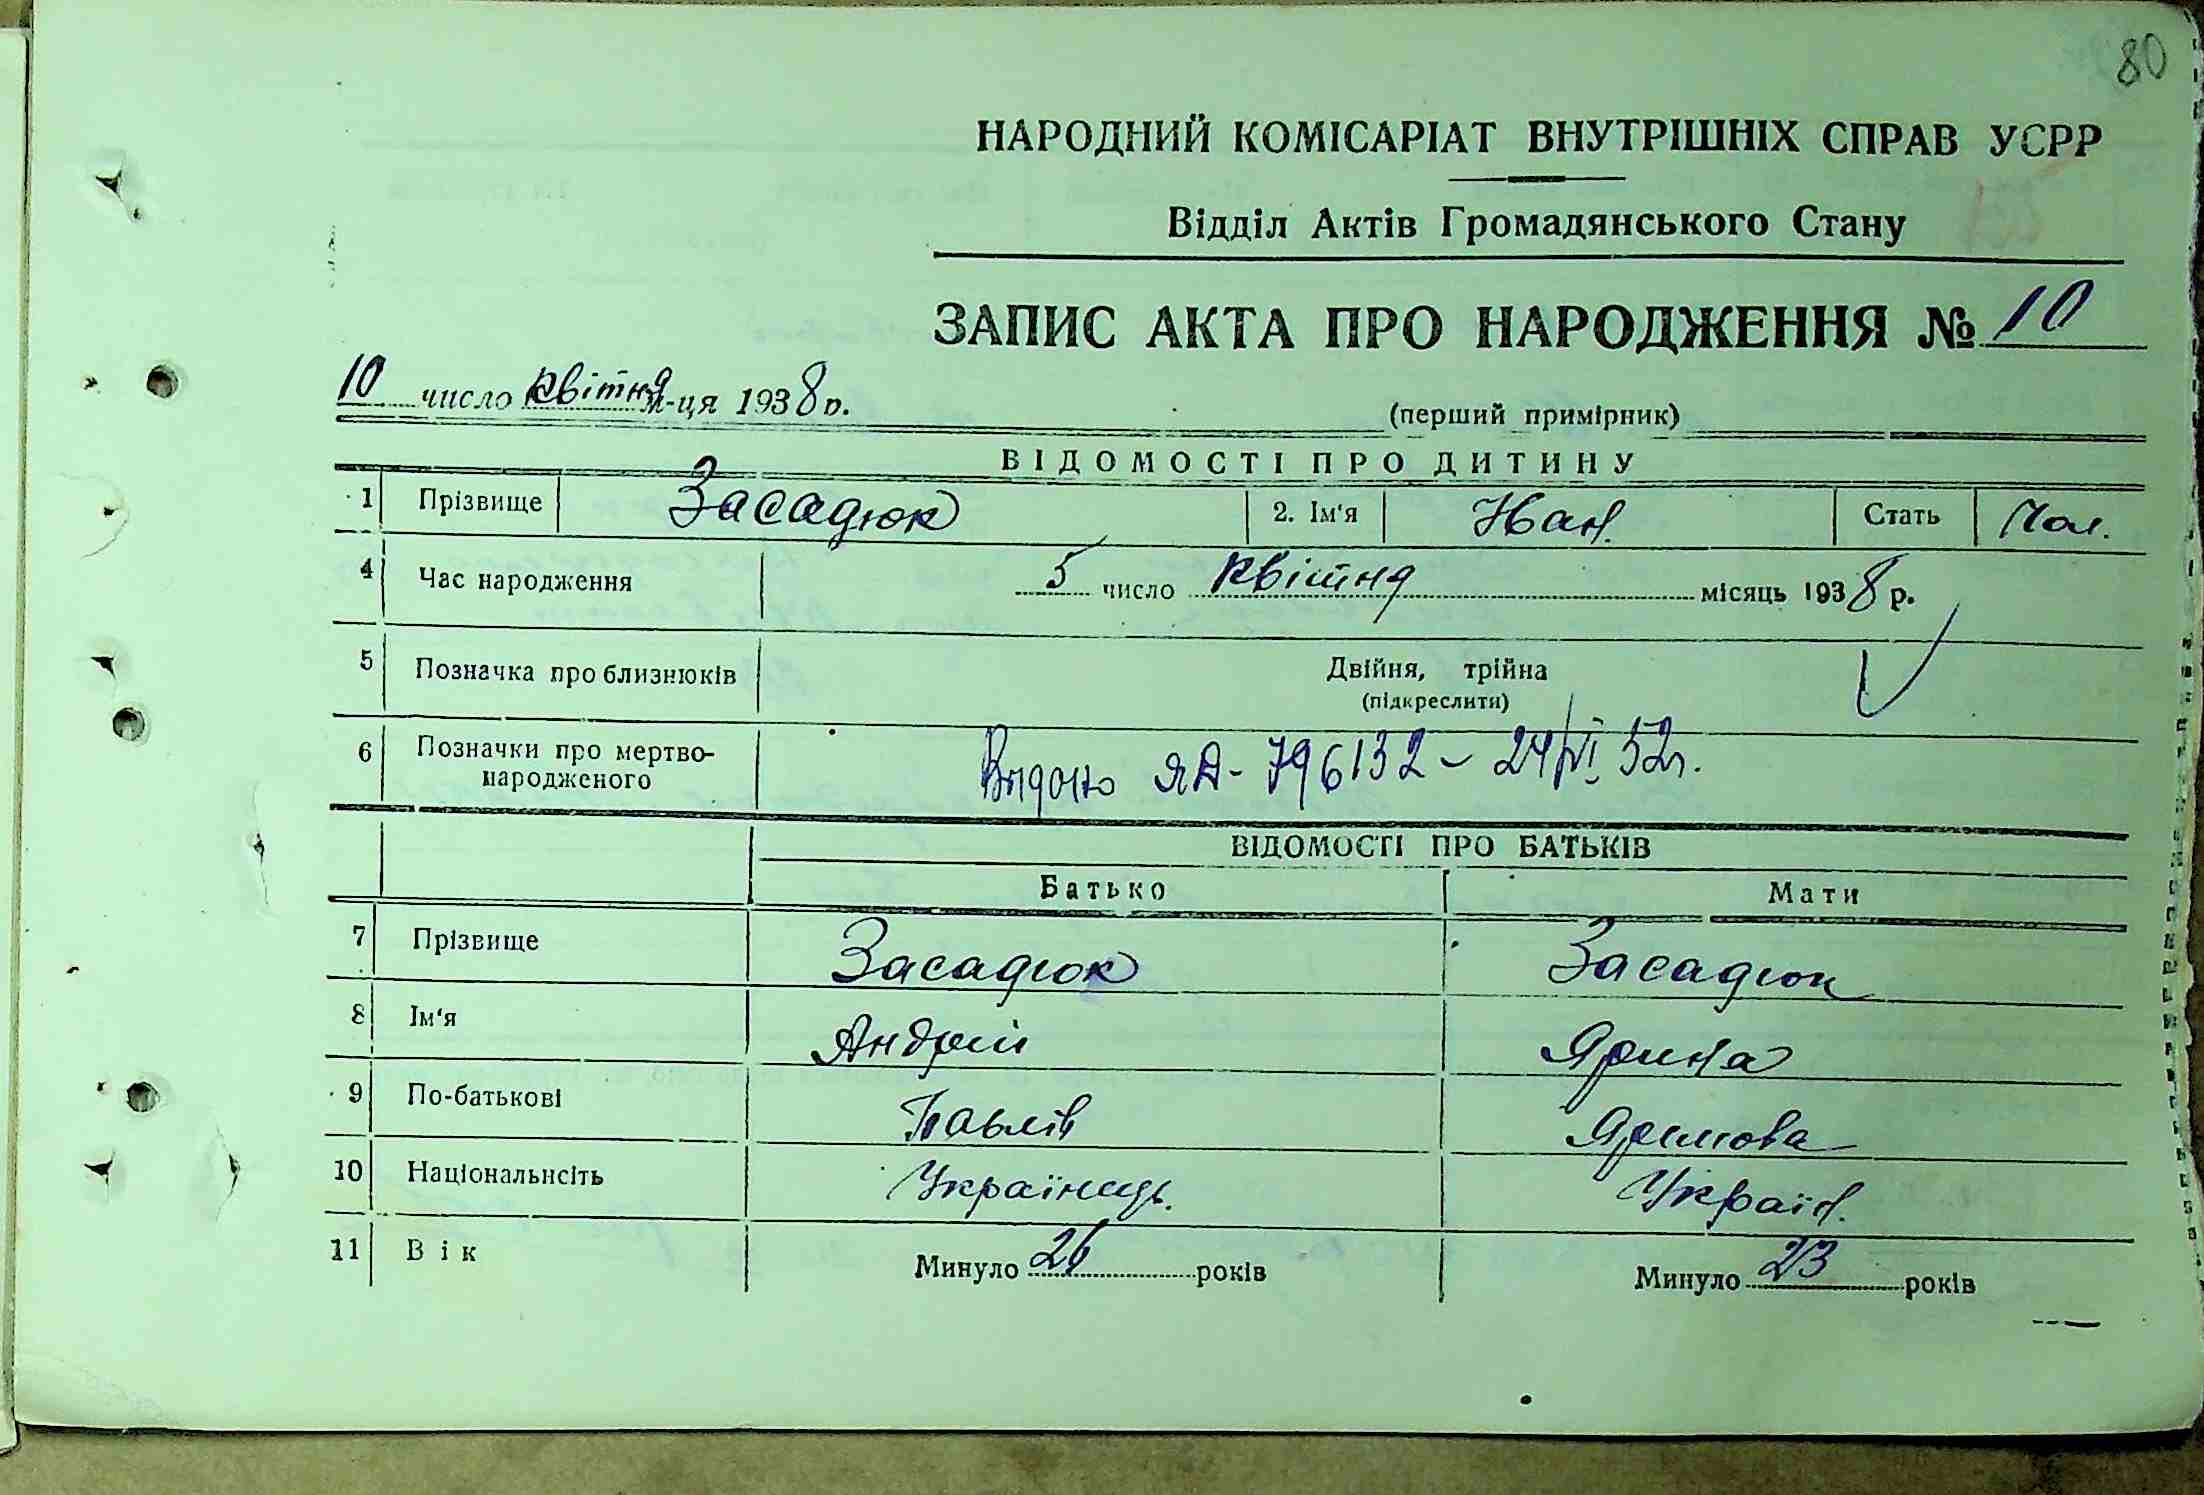 80
НАРОДНИЙ КОМІСАРІАТ ВНУТРІШНІХ СПРАВ УСРР
Відділ Актів Громадянського Стану
ЗАПИС АКТА ПРО НАРОДЖЕННЯ № 10
10 число квітня м-ця 1938 р.
(перший примірник)
ВІДОМОСТІ ПРО ДИТИНУ
1 Прізвище Засадюк 2. Ім'я Іван. Стать Чол.
4 Час народження 5 число квітня місяць 1938 р.
5 Позначка про близнюків Двійня, трійна
(підкреслити)
6 Позначки про мертво-
народженого
Видано ЯА-796132 - 24/VI 52г.
ВІДОМОСТІ ПРО БАТЬКІВ
Батько Мати
7 Прізвище Засадюк Засадюк
8 Ім'я Андрій Ярина
9 По-батькові Павлів
10 Національність Українець. Україн.
11 Вік Минуло 26 років Минуло 23 років